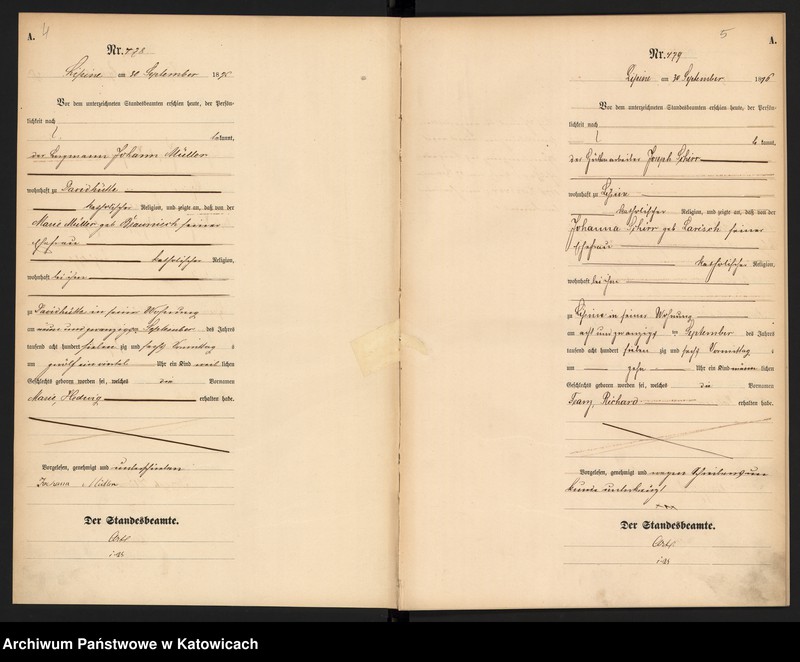 4
A.
Nr. 478
Lipine am 30 September 1876
Vor dem unterzeichneten Standesbeamten erschien heute, der Persön-
lichkeit nach
bekannt,
der Johann Müller
wohnhaft zu Davidhütte
katholischer Religion, und zeigte an, daß von der
Marie Müller geb seiner
Ehefrau
katholischer Religion,
wohnhaft bei ihm
zu Davidhütte in seiner Wohnung
am neun und zwanzigsten September des Jahres
tausend acht hundert sieben zig und sechs Vormittag s
um zwölf ein viertel Uhr ein Kind weib lichen
Geschlechts geboren worden sei, welches die Vornamen
Marie, Hedwig erhalten habe.
Vorgelesen, genehmigt und unterschrieben
Johann Müller
Der Standesbeamte.
5
A.
Nr. 479
Lipine am 30 September 1876
Vor dem unterzeichneten Standesbeamten erschien heute, der Persön-
lichkeit nach
be kannt,
der Hüttenarbeiter Joseph Schirr
wohnhaft zu Lipine
katholischer Religion, und zeigte an, daß von der
Johanna Schirr geb Larisch seiner
Ehefrau
katholischer Religion,
wohnhaft bei ihm
zu Lipine in seiner Wohnung
am acht und zwanzigst en September des Jahres
tausend acht hundert sieben zig und sechs Vormittag s
um zehn Uhr ein Kind männ lichen
Geschlechts geboren worden sei, welches die Vornamen
Franz, Richard erhalten habe.
Vorgelesen, genehmigt und wegen Schreibensun
kunde unterkreuzt
xxx
Der Standesbeamte.
Archiwum Państwowe w Katowicach